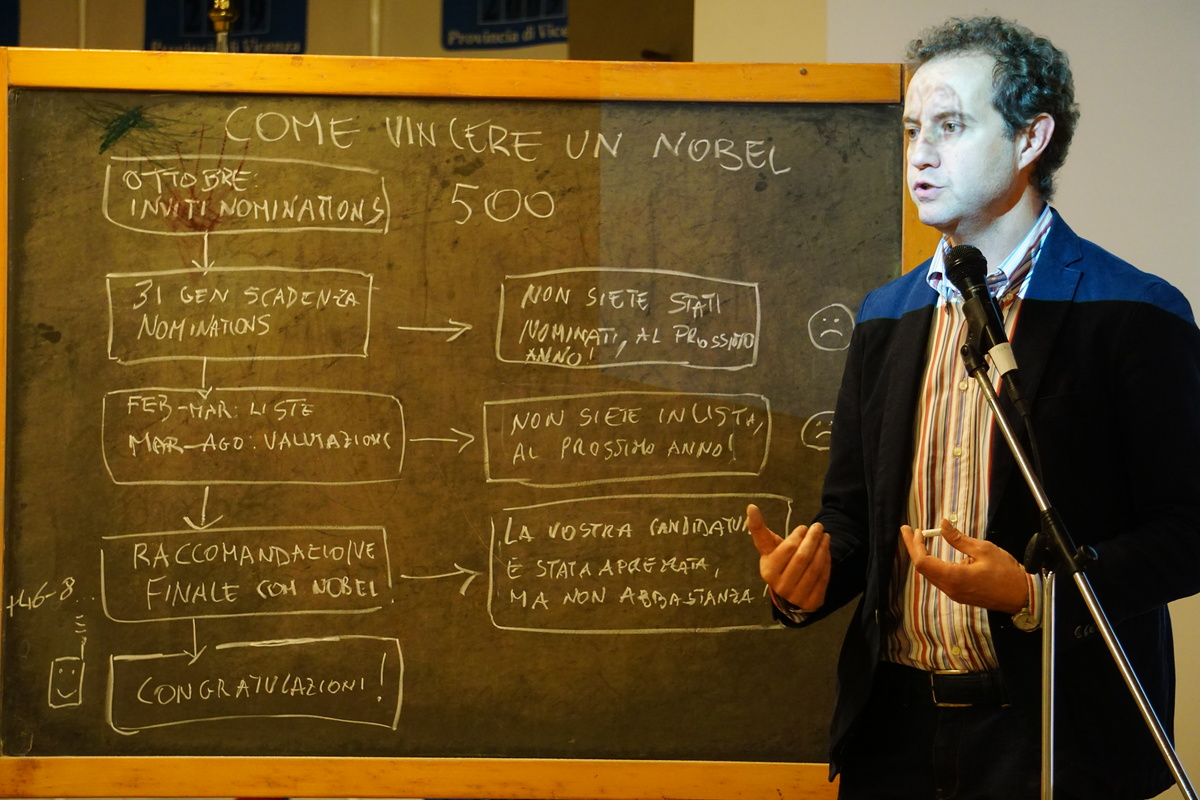 Provincia di Vicenza
Provincia di Vice
COME VINCERE UN NOBEL
OTTOBRE:
INVITI NOMINATIONS
500
31 GEN SCADENZA
NOMINATIONS
NON SIETE STATI
NOMINATI, AL PROSSIMO
ANNO!
FEB-MAR: LISTE
MAR-AGO: VALUTAZIONE
NON SIETE IN LISTA,
AL PROSSIMO ANNO!
RACCOMANDAZIONE
FINALE COM NOBEL!
LA VOSTRA CANDIDATU
È STATA APREZZATA,
MA NON ABBASTANZA!
+46-8..
CONGRATULAZIONI!